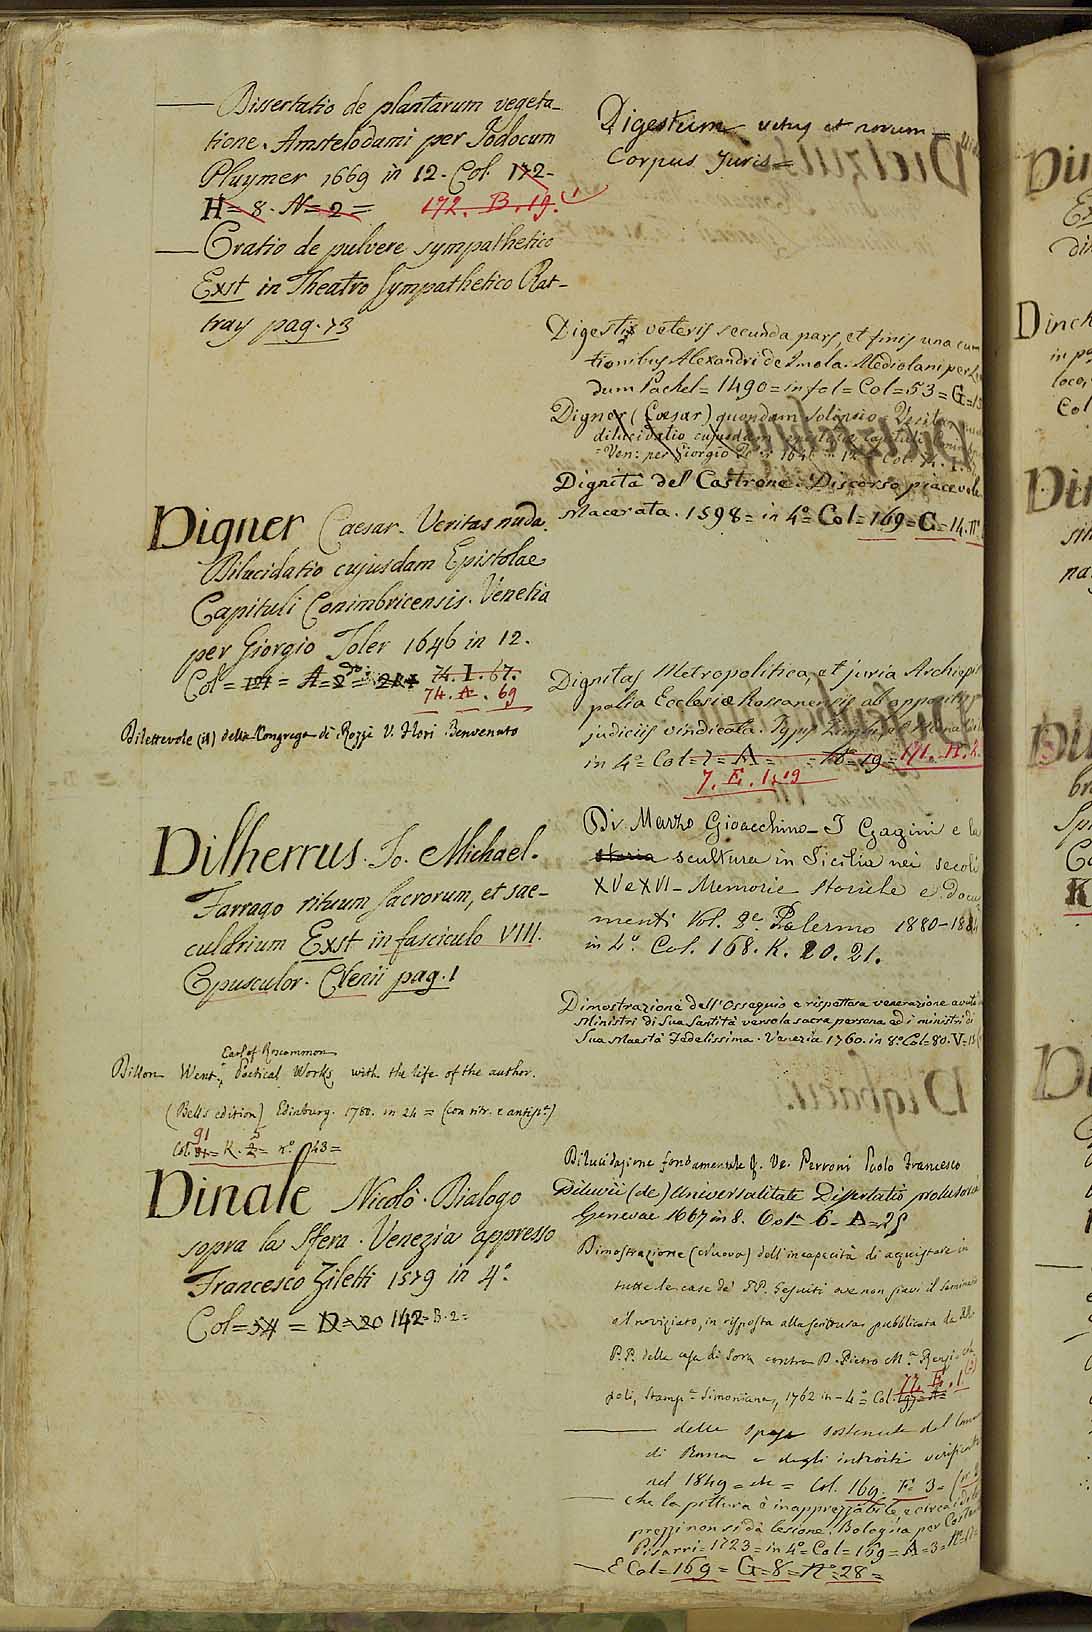 — Dissertatio de plantarum vegeta-
tione. Amstelodami per Jodocum
Pluymer 1669 in 12. Col. 172-
H=8. N=2= 172. B. 19.
— Oratio de pulvere sympathetico
Exst in Theatro Sympathetico Rat-
tray pag. 73
Digner Caesar. Veritas nuda.
Dilucidatio cujusdam Epistolae
Capituli Conimbricensis. Venetia
per Giorgio Toler 1646 in 12.
Col = = A=2= 74. I. 67.
74. A. 69
Dilettevole (il) della Congrega di Rozzi V. Flori Benvenuto
Dilherrus. Jo. Michael.
Farrago rituum sacrorum, et sae-
cularium Exst in fasciculo VIII.
Opusculor. Crenii pag. 1
Earl of Roscommon
Dillon Went; Poetical Works, with the life of the author.
(Bells edition) Edinburg. 1780. in 24 = (con ritr. e antip.ta)
91 5
Col. = K. 2= n.o 43=
Dinale Nicolò. Dialogo
sopra la Sfera. Venezia appresso
Francesco Ziletti 1579 in 4.o
Col=54 = D=20 142=B.2=
Digestum vetus et novum =
Corpus Juris=
Digestis veteris secunda pars, et finis una cum
tionibus Alexandri de Imola. Mediolani per
dum Pachel= 1490= in fol= Col=53= G=
Digner (Caesar) quondam
dilucidatio cujusdam epistolae capituli
Ven: per Giorgio
Dignità del Castrone. Discorso piacevole
Macerata. 1598= in 4.o Col=169=G=14. n.o
Dignitas Metropolitica, et juria Archiepis
palia Ecclesiae Rossanensis ab oppositis
judiciis vindicata.
in 4.o Col=7= A= =N.o=19= 171.
7. E. 1. 19
Di Marzo Gioacchino - I Gagini e la
storia scultura in Sicilia nei secoli
XV e XVI - Memorie storiche e docu
menti Vol. 2.e Palermo 1880-188
in 4.o Col. 168. K. 20. 21.
Dimostrazione dell'Ossequio e rispettosa venerazione
Ministri di Sua Santità verso la sacra persona ed i ministri di
Sua Maestà Fedelissima. Venezia 1760. in 8.o Col=80. V=
Dilucidazione fondamentale &. Ve. Perroni Paolo Francesco
Diluvii (de) Universalitate Dissertatio prolusoria
Genevae 1667 in 8. Col.a 6- A=25
Dimostrazione (Nuova) dell'incapacità di acquistare in
tutte le case de' PP. Gesuiti ove non siavi il seminario
o'l noviziato, in risposta alla scrittura pubblicata da RR.
P.P. della casa di Sora contro D. Pietro M.a
poli, Stamp.a Simoniana, 1762 in-4.o= Col. 197=A=
77. E. 1.
— delle spese sostenute dal
di Roma e degli introiti verificati
nel 1849= = Col. 169. F. 3=
— che la pittura è inapprezzabile, e circa i di lei
prezzi non si dà lesione. Bologna per
Pisarri=1723= in 4.o= Col=169=A=3=N=
— E Col=169= G=8= N.o=28=
Din
Din
Din
Di